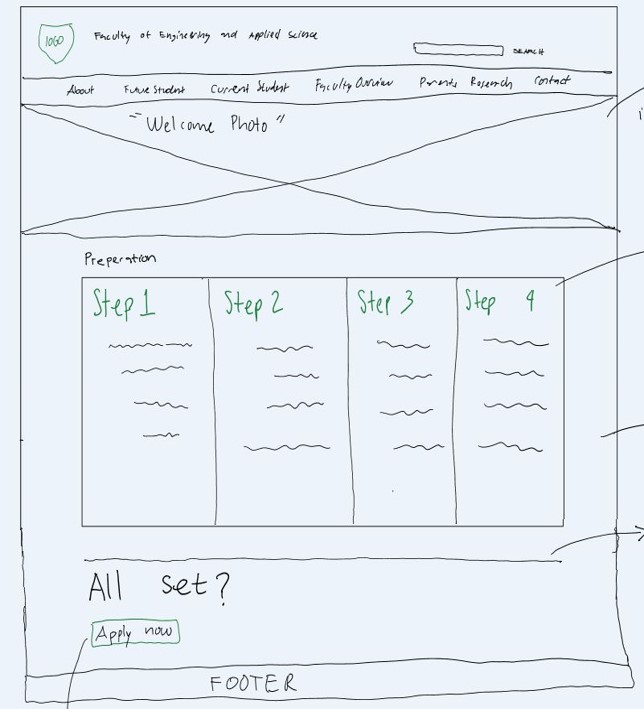 LOGO
Faculty of Engineering and Applied Science
SEARCH
About Future Student Current Student Faculty Overview Parents Research Contact
"Welcome Photo"
Preperation
Step 1 Step 2 Step 3 Step 4
All set?
Apply now
FOOTER